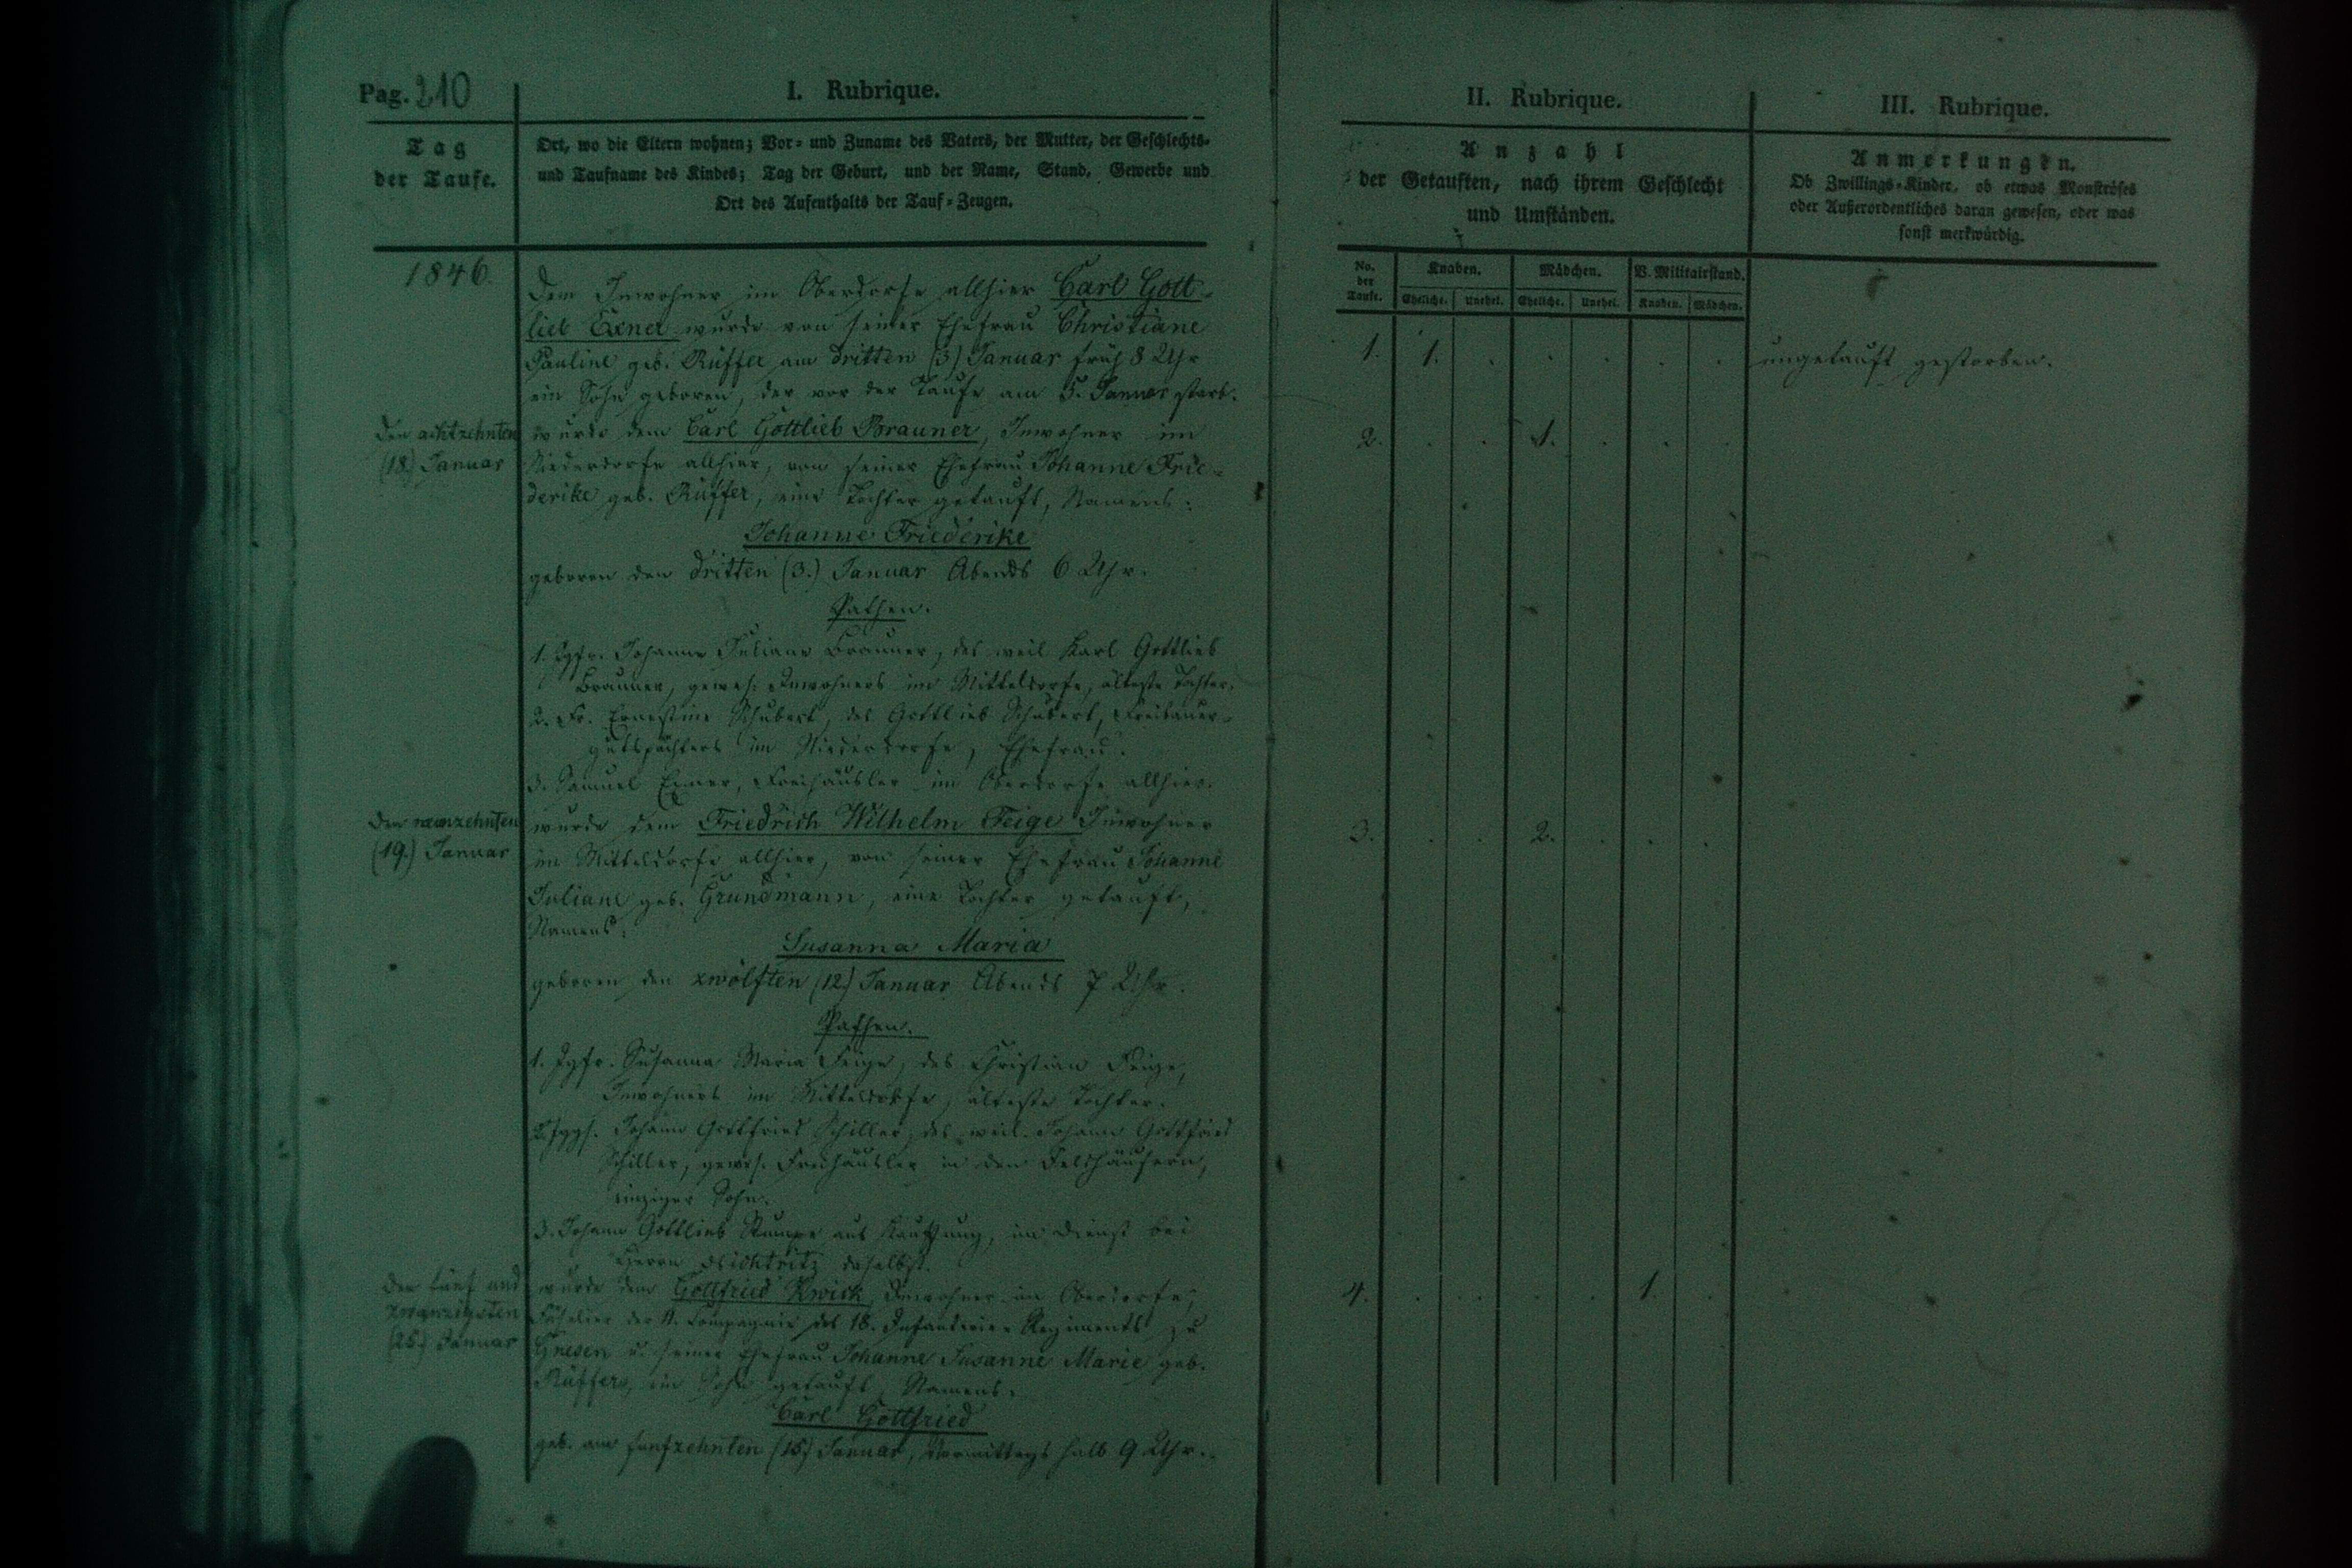 Pag. 210
I. Rubrique.
Tag
der Taufe.
Ort, wo die Eltern wohnen; Vor- und Zuname des Vaters, der Mutter, der Geschlechts-
und Taufname des Kindes; Tag der Geburt, und der Name, Stand, Gewerbe und
Ort des Aufenthalts der Tauf-Zeugen.
1846.
Dem Inwohner im Oberdorfe allhier Carl Gott-
lieb Exner wurde von seiner Ehefrau Christiane
Pauline geb. Rüffer am dritten (3) Januar früh 8 Uhr
ein Sohn geboren, der vor der Taufe am 5. Januar starb.
Den achtzehnten
(18) Januar
wurde dem Carl Gottlieb Brauner, Inwohner im
Niederdorfe allhier, von seiner Ehefrau Johanne Frie-
derike geb. Rüffer, eine Tochter getauft, Namens:
Johanne Friederike
geboren den dritten (3.) Januar Abends 6 Uhr.
Pathen.
1. Jgfr. Johanne Juliane Brauner, des weil Karl Gottlieb
Brauner, gewes. Inwohners im Mitteldorfe, älteste Tochter.
2. Fr. Ernestine Schubert, des Gottlieb Schubert, Freibauer-
gutspächters im Niederdorfe, Ehefrau.
3. Samuel Exner, Freihäusler im Oberdorfe allhier.
Den neunzehnten
(19.) Januar
wurde dem Friedrich Wilhelm Feige Inwohner
im Mitteldorfe allhier, von seiner Ehefrau Johanne
Juliane geb. Grundmann, eine Tochter getauft,
Namens:
Susanna Maria
geboren den zwölften (12.) Januar Abends 7 Uhr.
Pathen.
1. Jgfr. Susanna Maria Feige, des Christian Feige,
Inwohners im Mitteldorfe, älteste Tochter.
2. Jggs. Johann Gottfried Schiller, des weil. Johann Gottfried
Schiller, gewes. Freihäusler in den Feldhäusern,
einziger Sohn.
3. Johann Gottlieb Stumpe aus Kauffung, im Dienst bei
Herrn daselbst.
Den fünf und
zwanzigsten
(25.) Januar
wurde dem Gottfried Kwick, Inwohner im Oberdorfe,
Füselier der 11. Compagnie des 18. Infanterie-Regiments zu
Gnesen u. seiner Ehefrau Johanne Susanne Marie geb.
Rüffer, ein Sohn getauft, Namens:
Carl Gottfried
geb. am funfzehnten (15) Januar, Vormittags halb 9 Uhr.
II. Rubrique.
Anzahl
der Getauften, nach ihrem Geschlecht
und Umständen.
No. der Taufe. Knaben. Mädchen. V. Militairstand.
Eheliche. Unehel. Eheliche. Unehel. Knaben. Mädchen.
1. 1. . . . . .
2. . . 1. . . .
3. . . 2. . . .
4. . . . . 1. .
III. Rubrique.
Anmerkungen.
Ob Zwillings-Kinder, ob etwas Monströses
oder Außerordentliches daran gewesen, oder was
sonst merkwürdig.
ungetauft gestorben.